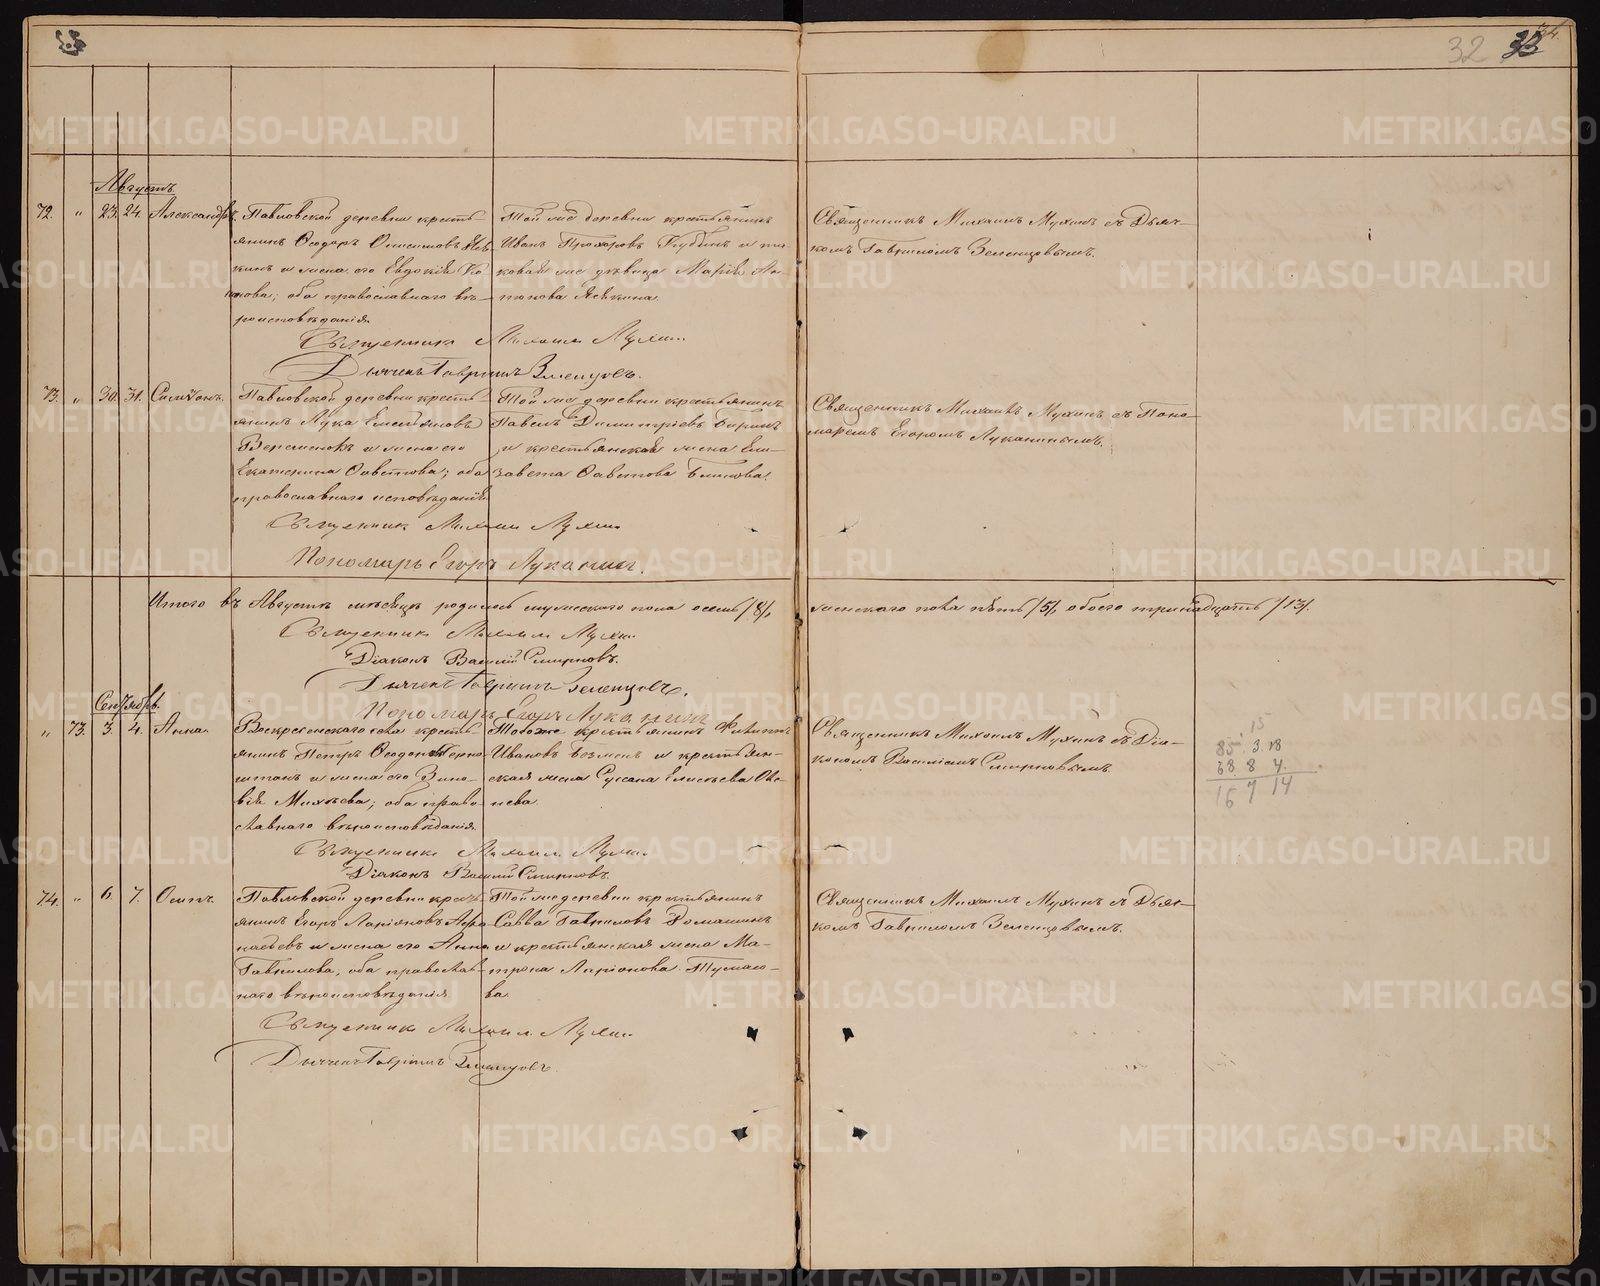 32 33 34.
Августъ.
72. " 23. 24. Александръ.
Павловской деревни кресть-
янинъ Ѳеодоръ Онисимовъ
кинъ и жена его Евдокія
нова; оба православнаго вѣ-
роисповѣданія.
Той же деревни крестьянинъ
Иванъ Прохоровъ и та-
ковая же дѣвица Марія Ан-
тонова
Священникъ Михаилъ Мухинъ съ Дьяч-
комъ Гавріиломъ Зеленцовымъ.
Священникъ Михаилъ Мухинъ
Дьячекъ Гавріилъ Зеленцовъ.
73. " 30. 31. Симеонъ.
Павловской деревни кресть-
янинъ Лука Емельяновъ
и жена его
Екатерина Саветова; оба
православнаго исповѣданія
Той же деревни крестьянинъ
Павелъ Димитріевъ
и крестьянская жена Ели-
завета Саветова Блинова.
Священникъ Михаилъ Мухинъ съ Поно-
маремъ Егоромъ Луканинымъ.
Священникъ Михаилъ Мухинъ
Пономарь Егоръ Луканинъ.
Итого въ Августѣ мѣсяцѣ родилось мужескаго пола осемь /8/, женскаго пола пять /5/, обоего тринадцать /13/.
Священникъ Михаилъ Мухинъ
Діаконъ Василій Смирновъ.
Дьячекъ Гавріилъ Зеленцовъ.
Пономарь Егоръ Луканинъ
Сентябрь.
" 73. 3. 4. Анна.
Воскресенскаго села кресть-
янинъ Петръ Ѳеодоровъ
и жена его Зино-
вія Михѣева; оба право-
славнаго вѣроисповѣданія.
Тогоже крестьянинъ Филиппъ
Ивановъ и крестьян-
ская жена Сусана Елисѣева
нева.
Священникъ Михаилъ Мухинъ съ Діа-
кономъ Василіемъ Смирновымъ.
15
85. 3. 18
68. 8 4.
16 7 14
Священникъ Михаилъ Мухинъ
Діаконъ Василій Смирновъ.
74. " 6. 7. Осипъ.
Павловской деревни крест-
янинъ Егоръ Ларіоновъ
и жена его Анна
Гаврилова, оба православ-
наго вѣроисповѣданія
Той же деревни крестьянинъ
Савва Гавриловъ Ромашинъ
и крестьянская жена Ма-
трона Ларіонова
ва.
Священникъ Михаилъ Мухинъ съ Дьяч-
комъ Гавріиломъ Зеленцовымъ.
Священникъ Михаилъ Мухинъ
Дьячекъ Гавріилъ Зеленцовъ.
METRIKI.GASO-URAL.RU